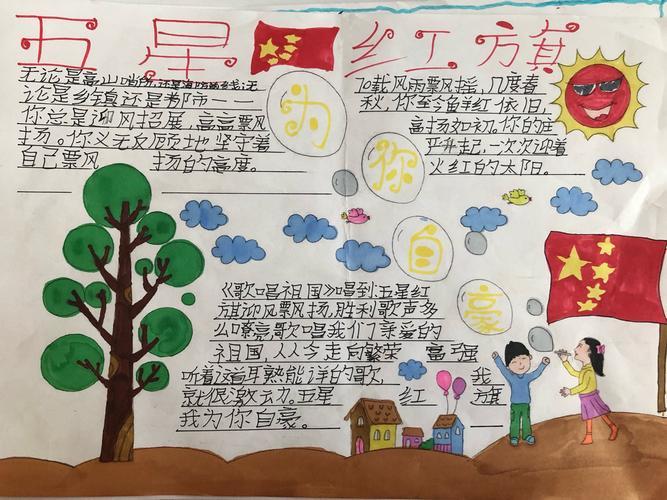 五星红旗
为你自豪
无论是高山哨所,还是海防
论是乡镇还是都市一一
你总是迎风招展,高高飘风
扬。你义无反顾地 坚守着
自己飘风 扬的高度。
70载风雨飘风摇,几度春
秋,你至今鱼羊红 依旧,
高扬如初。你的庄
严升起,一次次迎着
火红的太阳。
《歌唱祖国》唱到:五星红
旗迎风飘风扬,胜利歌声多
么嘹亮歌唱我们了亲爱的
祖国,从今走向繁荣 富强
听着这首耳熟能详的歌,
就很激动。五星 红 我 旗
我为你自豪。